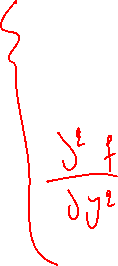 { ∂² f / ∂y²